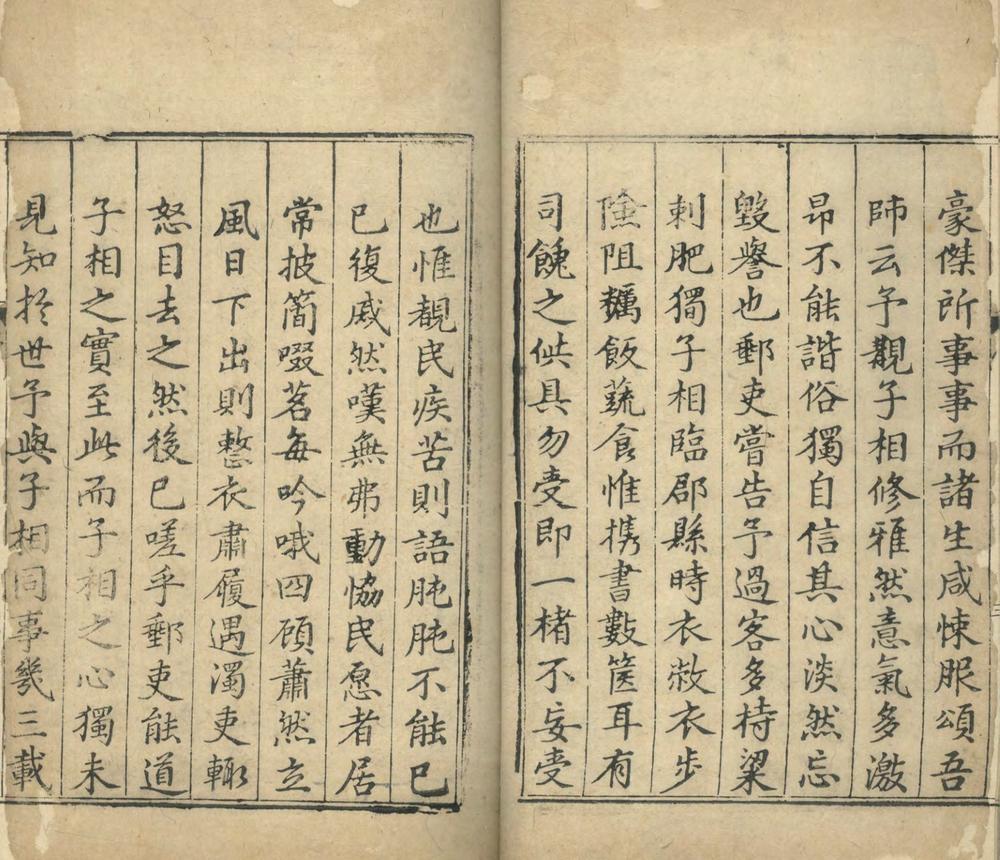 豪傑所事事而諸生咸悚服頌吾
師云予覩子相修雅然意氣多激
昂不能諧俗獨自信其心淡然忘
毀譽也郵吏嘗告予過客多持粱
刺肥獨子相臨郡縣時衣敝衣步
險阻糲飯蔬食惟携書數篋耳有
司餽之供具勿受即一楮不妄受
也惟覩民疾苦則語肫肫不能已
已復戚然嘆無弗動恊民愿者居
常披簡啜茗每吟哦四顧蕭然立
風日下出則整衣肅履遇濁吏輙
怒目去之然後已嗟乎郵吏能道
子相之實至此而子相之心獨未
見知於世予與子相同事幾三載